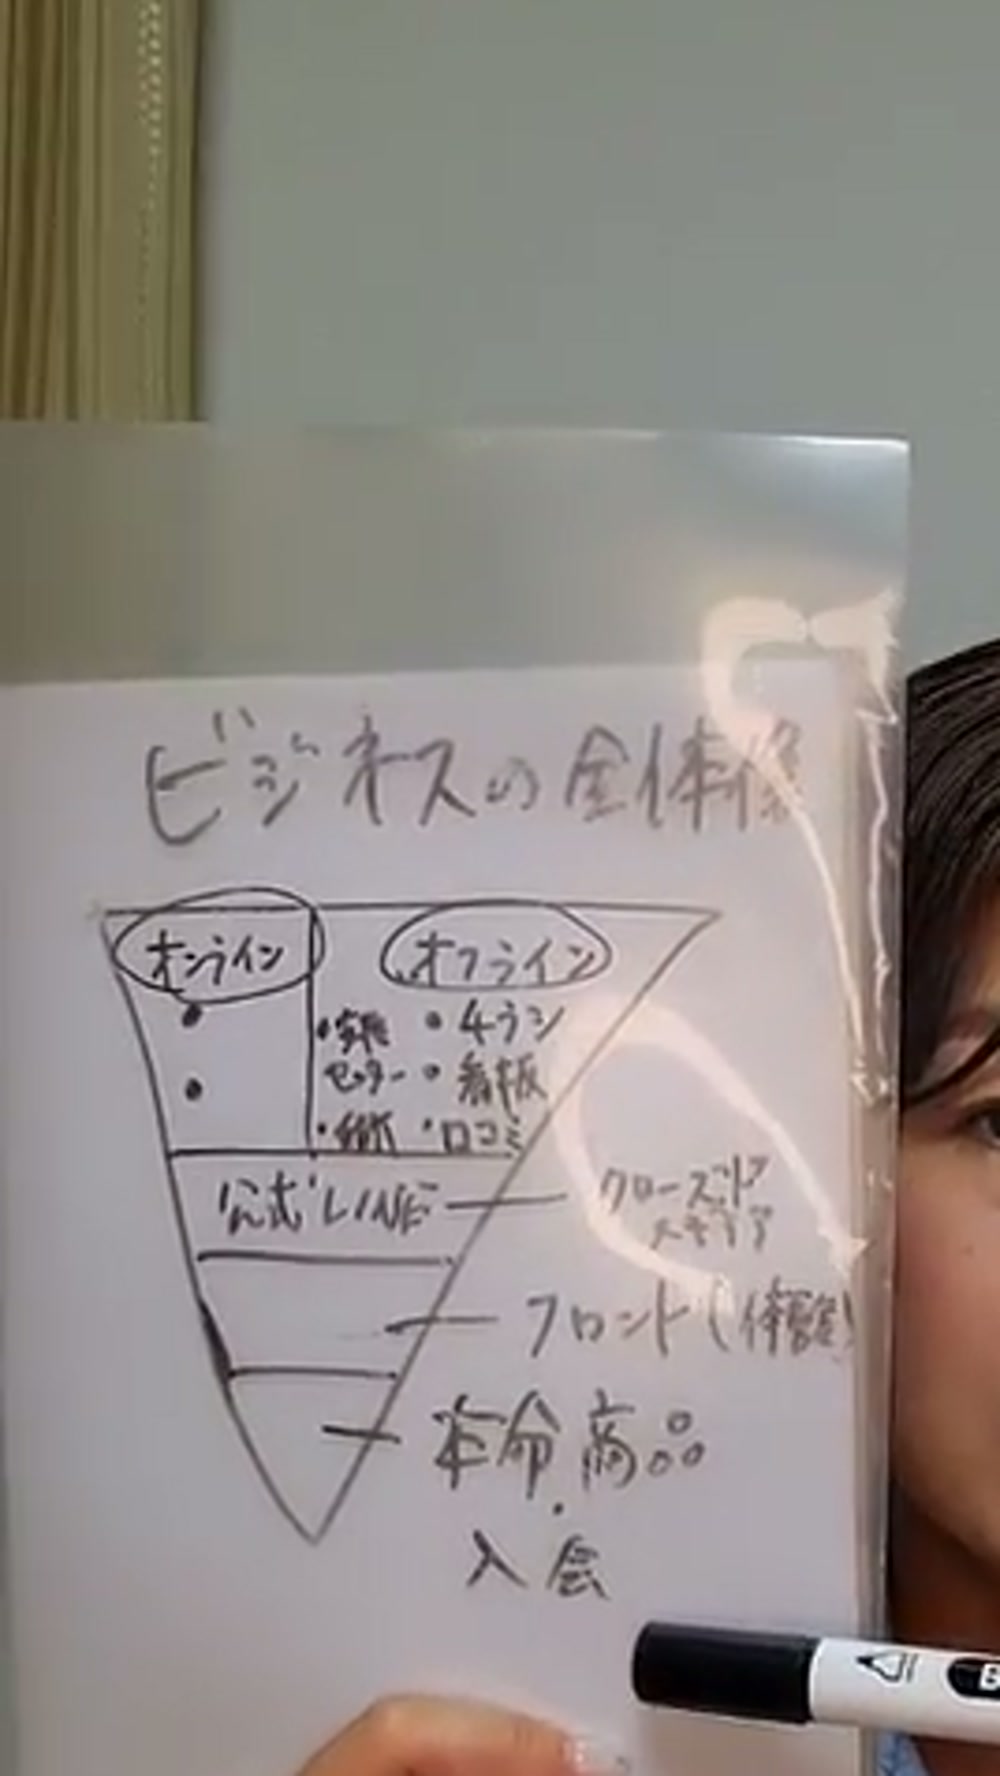 ビジネスの全体像
オンライン
オフライン
・チラシ
センター ・看板
・口コミ
公式LINE
クローズド
フロント(体験)
本命商品
入会
B